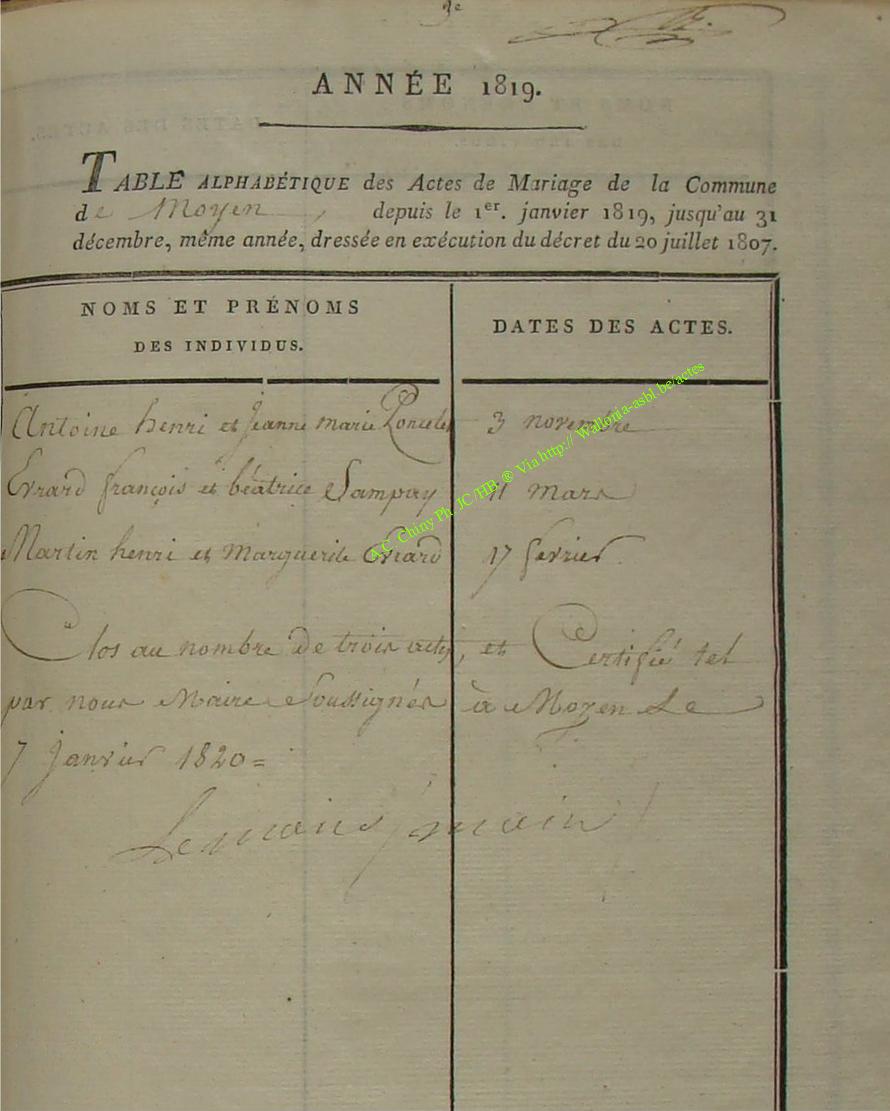 3e
ANNÉE 1819.
TABLE ALPHABÉTIQUE des Actes de Mariage de la Commune
de Moyen, depuis le 1er. janvier 1819, jusqu'au 31
décembre, même année, dressée en exécution du décret du 20 juillet 1807.
NOMS ET PRÉNOMS
DES INDIVIDUS.
DATES DES ACTES.
Antoine henri et jeanne marie Poncelet 3 novembre
Evrard françois et béatrice Sampay 11 mars
Martin henri et Marguerite Evrard 17 fevrier
Clos au nombre de trois actes, et Certifié tel
par nous Maire Soussignés à Moyen Le
7 janvier 1820 =
A.C. Chiny Ph. JC/HB ® Via http:// Wallonia-asbl.be/actes